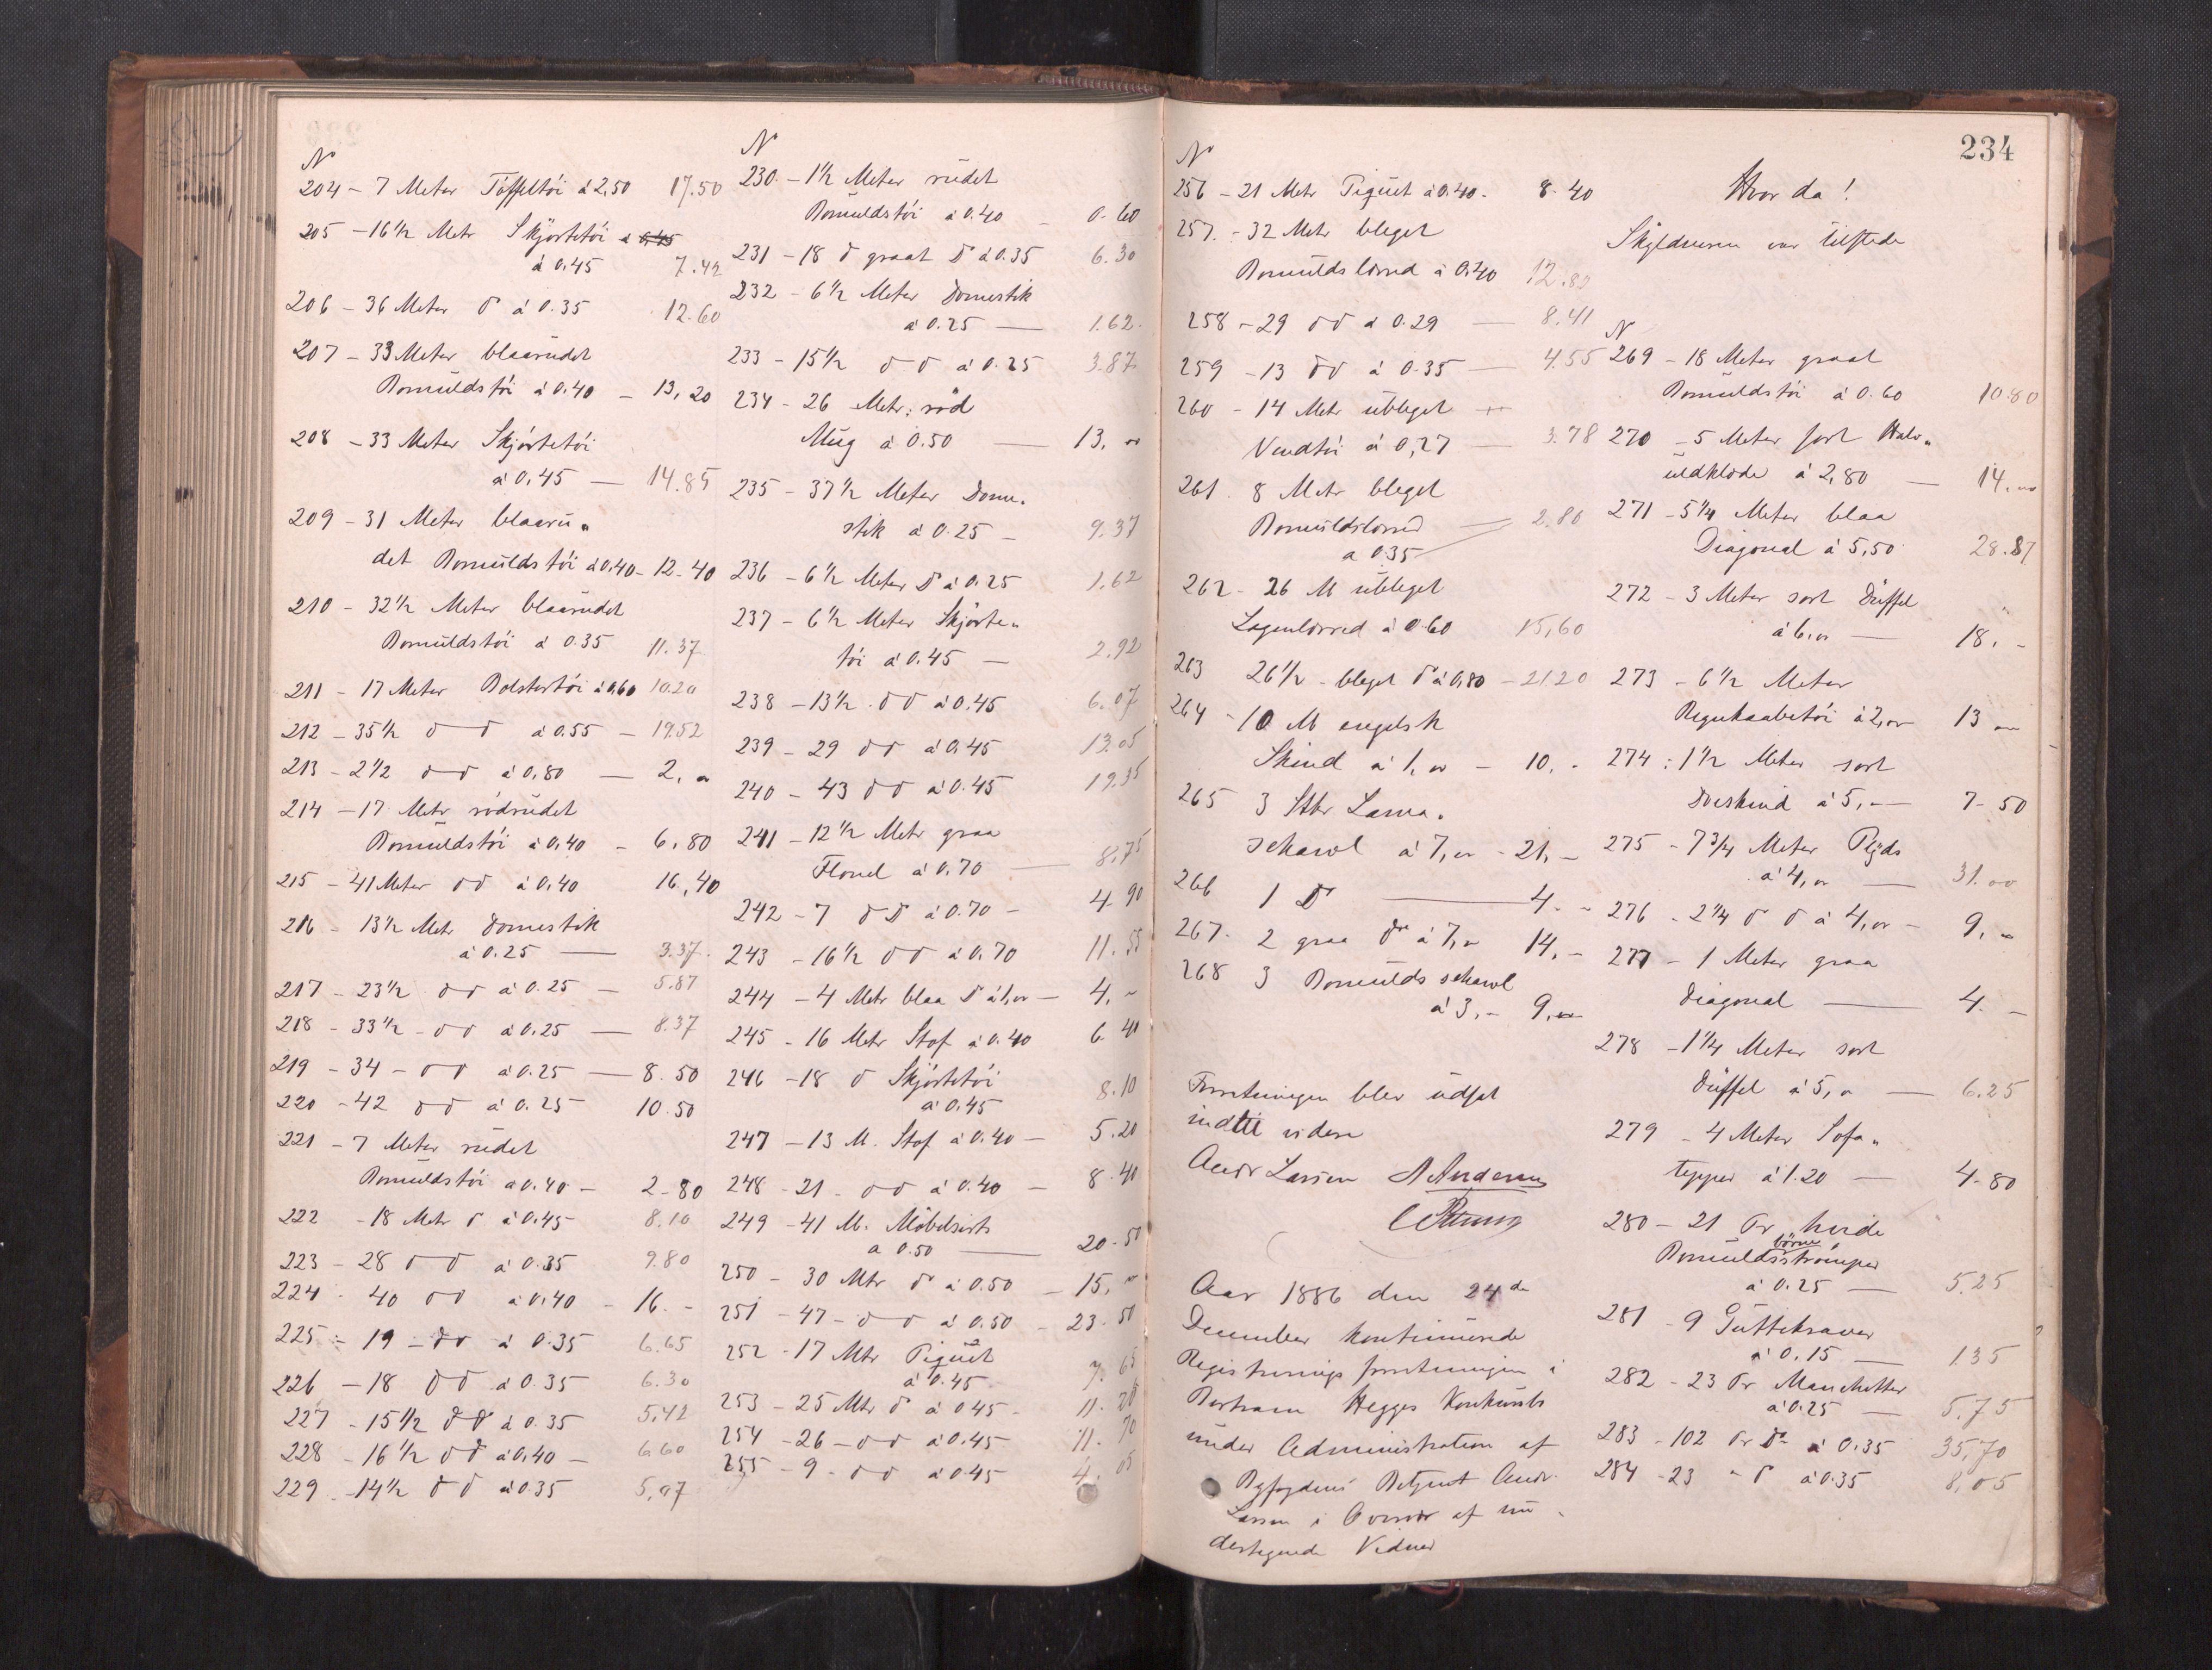 N
204 - 7 Meter Töffeltöi à 2,50 17.50
205 - 16 1/2 Metr Skjörtetöi à 0,45
à 0.45 7.42
206 - 36 Meter d à 0.35 12.60
207 - 33 Meter blaarudet
Bomuldstöi à 0.40 - 13,20
208 - 33 Meter Skjörtetöi
à 0,45 — 14.85
209 - 31 Meter blaaru„
det Bomuldstöi à 0.40 - 12-40
210 - 32 1/2 Meter blaarudet
Bomuldstöi à 0.35 11.37
211 - 17 Meter Bolstertöi à 0,60 10.20
212 - 35 1/2 d — d à 0.55 - 19.52
213 - 2 1/2 d d à 0,80 — 2, "
214 - 17 Metr rödrudet
Bomuldstöi à 0,40 - 6,80
215 - 41 Meter d d à 0,40 16,40
216 - 13 1/2 Metr Domestik
à 0.25 — 3.37
217 - 23 1/2 d d à 0.25 - 5.87
218 - 33 1/2 - d d à 0.25 — 8.37
219 - 34 - d d à 0.25 — 8.50
220 - 42 d d à 0.25 10.50
221 - 7 Meter rudet
Bomuldstöi a 0.40 - 2-80
222 - 18 Metr d à 0,45 8,10
223 - 28 d d à 0.35 9.80
224 - 40 d d à 0,40 - 16. -
225 - 19 - d d à 0.35 6.65
226 - 18 d d à 0.35 6.30
227 - 15 1/2 d d à 0.35 5,42
228 - 16 1/2 d d à 0,40 - 6.60
229 - 14 1/2 d d à 0.35 5,07
N
230 - 1 1/2 Meter rudet
Bomuldstöi à 0.40 - 0.60
231 - 18 d graat d à 0.35 6.30
232 - 6 1/2 Meter Domestik
à 0.25 — 1.62
233 - 15 1/2 d d à 0.25 3.87
234 - 26 Metr. röd
Mug à 0.50 — 13, "
235 - 37 1/2 Meter Dome.
stik à 0.25 - 9.37
236 - 6 1/2 Meter d à 0.25 1.62
237 - 6 1/2 Meter Skjörte„
töi à 0.45 — 2.92
238 - 13 1/2 d d à 0.45 6.07
239 - 29 d d à 0,45 13.05
240 - 43 d d à 0.45 19.35
241 - 12 1/2 Metr graa
Flonel à 0.70 — 8,75
242 - 7 d d à 0.70 - 4.90
243 - 16 1/2 d d à 0.70 11.55
244 - 4 Metr blaa d à 1,00 — 4, -
245 - 16 Metr Stof à 0.40 6.40
246 - 18 d Skjörtetöi
à 0.45 8.10
247 - 13 M. Stof à 0.40 — 5.20
248 - 21 - d d à 0.40 - 8.40
249 - 41 M. Möbelsirts
a 0.50 — 20-50
250 - 30 Mtr d à 0.50 - 15, "
251 - 47 - d d à 0.50 - 23.50
252 - 17 Mtr Piquet
à 0.45 7.65
253 - 25 Mtr d à 0 45 - 11.20
254 - 26 - d d à 0.45 11.70
255 - 9 - d d à 0.45 4.05
234
N
256 - 21 Metr Piquet à 0.40 - 8.40
257. - 32 Metr bleget
Bomuldslörred à 0.40 12.80
258 - 29 d d à 0.29 — 8,41
259 - 13 d d à 0.35 — 4.55
260 - 14 Metr ubleget
Vendtöi à 0,27 — 3.78
261. 8 Metr bleget
Bomuldslörred — 2.80
a 0.35
262 - 26 M ubleget
Lagenlörred à 0.60 15,60
263 26 1/2 - bleget d à 0,80 - 21.20
264 - 10 M engelsk
Skind à 1,00 - 10. -
265 3 Stkr Lama.
schawl à 7,00 - 21, -
266 1 d — 4. -
267. 2 graa do à 7,00 14, -
268 3 Bomulds schawl
à 3,- 9,00
Forretningen blev udsat
indtil videre
Andr Larsen A Andersen
Aar 1886 den 24de
December kontinuerede
Registrerings forretningen i
Bertram Hegges Konkursbo
under Administration af
Byfogdens Betjent Andr.
Larsen i Overvær af un
dertegnede Vidner
Hvor da!
Skyldneren var tilstede
N
269 - 18 Meter graat
Bomuldstöi à 0.60 10.80
270 - 5 Meter sort Halv„
uldklæde à 2,80 — 14,00
271 - 5 1/4 Meter blaa
Diagonal à 5,50 28.87
272 - 3 Meter sort Düffel
à 6,00 — 18. -
273 - 6 1/2 Meter
Regnkaabetöi à 2,00 13 00
274 : 1 1/2 Meter sort
Doeskind à 5,- — 7-50
275 - 7 3/4 Meter Plyds
à 4,00 — 31.00
276 - 2 1/4 d d à 4,00 - 9, "
277 - 1 Meter graa
Diagonal — 4. -
278 - 1 1/4 Meter sort
Düffel à 5,00 — 6.25
279 - 4 Meter Sofa„
tepper à 1.20 — 4.80
280 - 21 Pr hvide
börne
Bomuldsströmper
à 0.25 — 5,25
281 - 9 Guttekraver
à 0.15 — 1.35
282 - 23 Pr Manchetter
à 0.25 — 5,75
283 - 102 Pr do à 0.35 35,70
284 - 23 " d à 0.35 8,05